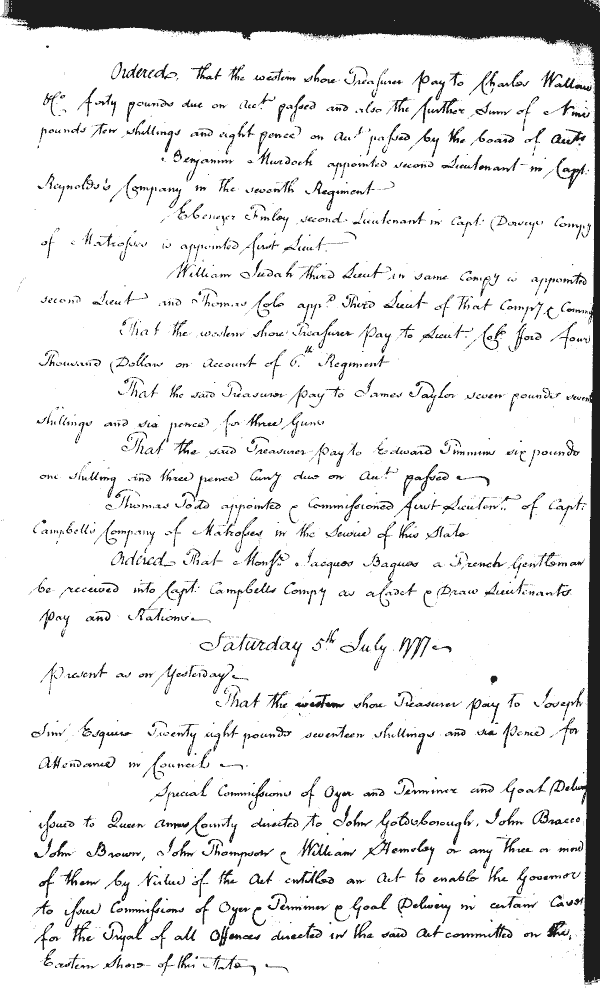 Ordered that the western shore Treasurer pay to Charles Wallace
&Co forty pounds due on Acct passed and also the further Sum of Nine
pounds ten shillings and eight pence on Acct passed by the board of Auts
Benjamin Murdoch appointed second Lieutenant in Capt
Reynolds's Company in the seventh Regiment
Ebenezer Finley second Lieutenant in Capt Dorseys Compy
of Matrosses is appointed first Lieut
William Judah third Lieut in same Compy is appointed
second Lieut and Thomas Colo appd Third Lieut of that Compy &
That the western shore Treasurer Pay to Lieut Colo Ford four
Thousand Dollars on Account of 6th Regiment
That the said Treasurer pay to James Taylor seven pounds seven
shillings and six pence for three Guns
That the said Treasurer Pay to Edward Timmins six pounds
one shilling and three pence Curry due on Acct passed
Thomas Todd appointed & Commissioned first Lieutent of Capt
Campbells Company of Matrosses in the Service of this State
Ordered That Monsr Jacques Baques a French Gentleman
be received into Capt Campbells Compy as a Cadet & Draw Lieutenants
Pay and Rations
Saturday 5th July 1777
Present as on Yesterday
That the western shore Treasurer pay to Joseph
Sim Esquire Twenty eight pounds seventeen shillings and six Pence for
Attendance in Council
Special Commissions of Oyer and Terminer and Goal Delivy
issued to Queen Anns County directed to John Goldsborough, John Bracco
John Brown, John Thompson & William Hemsley or any three or more
of them by Virtue of the Act entitled an Act to enable the Governor
to issue Commissions of Oyer & Terminer & Goal Delivery in certain Cases
for the Tryal of all Offences directed in the said Act committed on the
Eastern Shore of this State